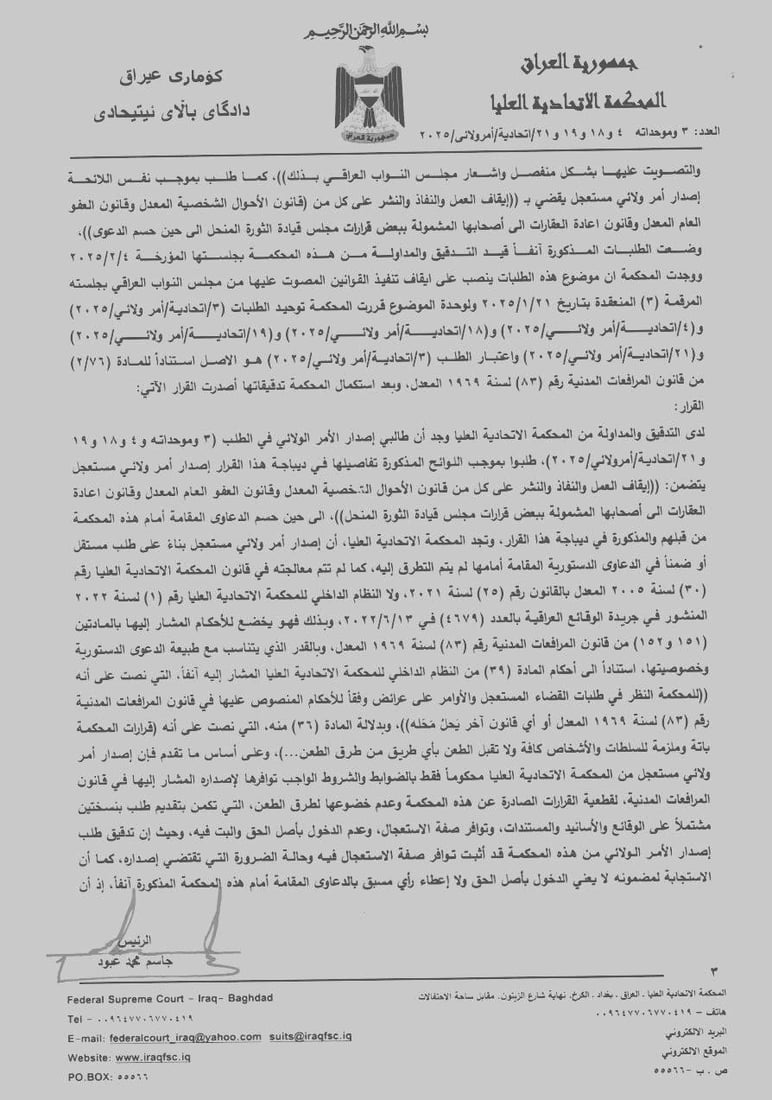 بسم الله الرحمن الرحيم
جمهورية العراق
المحكمة الاتحادية العليا
كۆماری عیراق
دادگای باڵای ئیتیحادی
جمهورية العراق
العدد: ٣ وموحداته ٤ و ١٨ و ١٩ و ٢١/اتحادية/أمر ولائي/٢٠٢٥
والتصويت عليها بشكل منفصل واشعار مجلس النواب العراقي بذلك))، كما طلب بموجب نفس اللائحة
إصدار أمر ولائي مستعجل يقضي بـ ((إيقاف العمل والنفاذ والنشر على كل من (قانون الأحوال الشخصية المعدل وقانون العفو
العام المعدل وقانون اعادة العقارات الى أصحابها المشمولة ببعض قرارات مجلس قيادة الثورة المنحل الى حين حسم الدعوى))،
وضعت الطلبات المذكورة آنفاً قيد التدقيق والمداولة من هذه المحكمة بجلستها المؤرخة ٢٠٢٥/٢/٤
ووجدت المحكمة ان موضوع هذه الطلبات ينصب على ايقاف تنفيذ القوانين المصوت عليها من مجلس النواب العراقي بجلسته
المرقمة (٣) المنعقدة بتاريخ ٢٠٢٥/١/٢١ ولوحدة الموضوع قررت المحكمة توحيد الطلبات (٣/اتحادية/أمر ولائي/٢٠٢٥)
و(٤/اتحادية/أمر ولائي/٢٠٢٥) و(١٨/اتحادية/أمر ولائي/٢٠٢٥) و(١٩/اتحادية/أمر ولائي/٢٠٢٥)
و(٢١/اتحادية/أمر ولائي/٢٠٢٥) واعتبار الطلب (٣/اتحادية/أمر ولائي/٢٠٢٥) هو الاصل استناداً للمادة (٢/٧٦)
من قانون المرافعات المدنية رقم (٨٣) لسنة ١٩٦٩ المعدل، وبعد استكمال المحكمة تدقيقاتها أصدرت القرار الآتي:
القرار:
لدى التدقيق والمداولة من المحكمة الاتحادية العليا وجد أن طالبي إصدار الأمر الولائي في الطلب (٣ وموحداته و ٤ و ١٨ و ١٩
و ٢١/اتحادية/أمرولائي/٢٠٢٥)، طلبوا بموجب اللوائح المذكورة تفاصيلها في ديباجة هذا القرار إصدار أمر ولائي مستعجل
يتضمن: ((إيقاف العمل والنفاذ والنشر على كل من قانون الأحوال الشخصية المعدل وقانون العفو العام المعدل وقانون اعادة
العقارات الى أصحابها المشمولة ببعض قرارات مجلس قيادة الثورة المنحل))، الى حين حسم الدعاوى المقامة أمام هذه المحكمة
من قبلهم والمذكورة في ديباجة هذا القرار، وتجد المحكمة الاتحادية العليا، أن إصدار أمر ولائي مستعجل بناءً على طلب مستقل
أو ضمناً في الدعاوى الدستورية المقامة أمامها لم يتم التطرق إليه، كما لم تتم معالجته في قانون المحكمة الاتحادية العليا رقم
(٣٠) لسنة ٢٠٠٥ المعدل بالقانون رقم (٢٥) لسنة ٢٠٢١، ولا النظام الداخلي للمحكمة الاتحادية العليا رقم (١) لسنة ٢٠٢٢
المنشور في جريدة الوقائع العراقية بالعدد (٤٦٧٩) في ٢٠٢٢/٦/١٣، وبذلك فهو يخضع للأحكام المشار إليها بالمادتين
(١٥١ و ١٥٢) من قانون المرافعات المدنية رقم (٨٣) لسنة ١٩٦٩ المعدل، وبالقدر الذي يتناسب مع طبيعة الدعوى الدستورية
وخصوصيتها، استناداً الى أحكام المادة (٣٩) من النظام الداخلي للمحكمة الاتحادية العليا المشار إليه آنفاً، التي نصت على أنه
((للمحكمة النظر في طلبات القضاء المستعجل والأوامر على عرائض وفقاً للأحكام المنصوص عليها في قانون المرافعات المدنية
رقم (٨٣) لسنة ١٩٦٩ المعدل أو أي قانون آخر يَحلُ مَحَله))، وبدلالة المادة (٣٦) منه، التي نصت على أنه (قرارات المحكمة
باتة وملزمة للسلطات والأشخاص كافة ولا تقبل الطعن بأي طريق من طرق الطعن...)، وعلى أساس ما تقدم فإن إصدار أمر
ولائي مستعجل من المحكمة الاتحادية العليا محكوماً فقط بالضوابط والشروط الواجب توافرها لإصداره المشار إليها في قانون
المرافعات المدنية، لقطعية القرارات الصادرة عن هذه المحكمة وعدم خضوعها لطرق الطعن، التي تكمن بتقديم طلب بنسختين
مشتملاً على الوقائع والأسانيد والمستندات، وتوافر صفة الاستعجال، وعدم الدخول بأصل الحق والبت فيه، وحيث إن تدقيق طلب
إصدار الأمر الولائي من هذه المحكمة قد أثبت توافر صفة الاستعجال فيه وحالة الضرورة التي تقتضي إصداره، كما أن
الاستجابة لمضمونه لا يعني الدخول بأصل الحق ولا إعطاء رأي مسبق بالدعاوى المقامة أمام هذه المحكمة المذكورة آنفاً، إذ أن
الرئيس
جاسم محمد عبود
٣
المحكمة الاتحادية العليا . العراق . بغداد . الكرخ . نهاية شارع الزيتون . مقابل ساحة الاحتفالات
هاتف – ٠٠٩٦٤٧٧٠٦٧٧٠٤١٩
البريد الالكتروني
الموقع الالكتروني
ص . ب – ٥٥٥٦٦
Federal Supreme Court - Iraq- Baghdad
Tel - ٠٠٩٦٤٧٧٠٦٧٧٠٤١٩
E-mail: federalcourt_iraq@yahoo.com suits@iraqfsc.iq
Website: www.iraqfsc.iq
PO.BOX: ٥٥٥٦٦